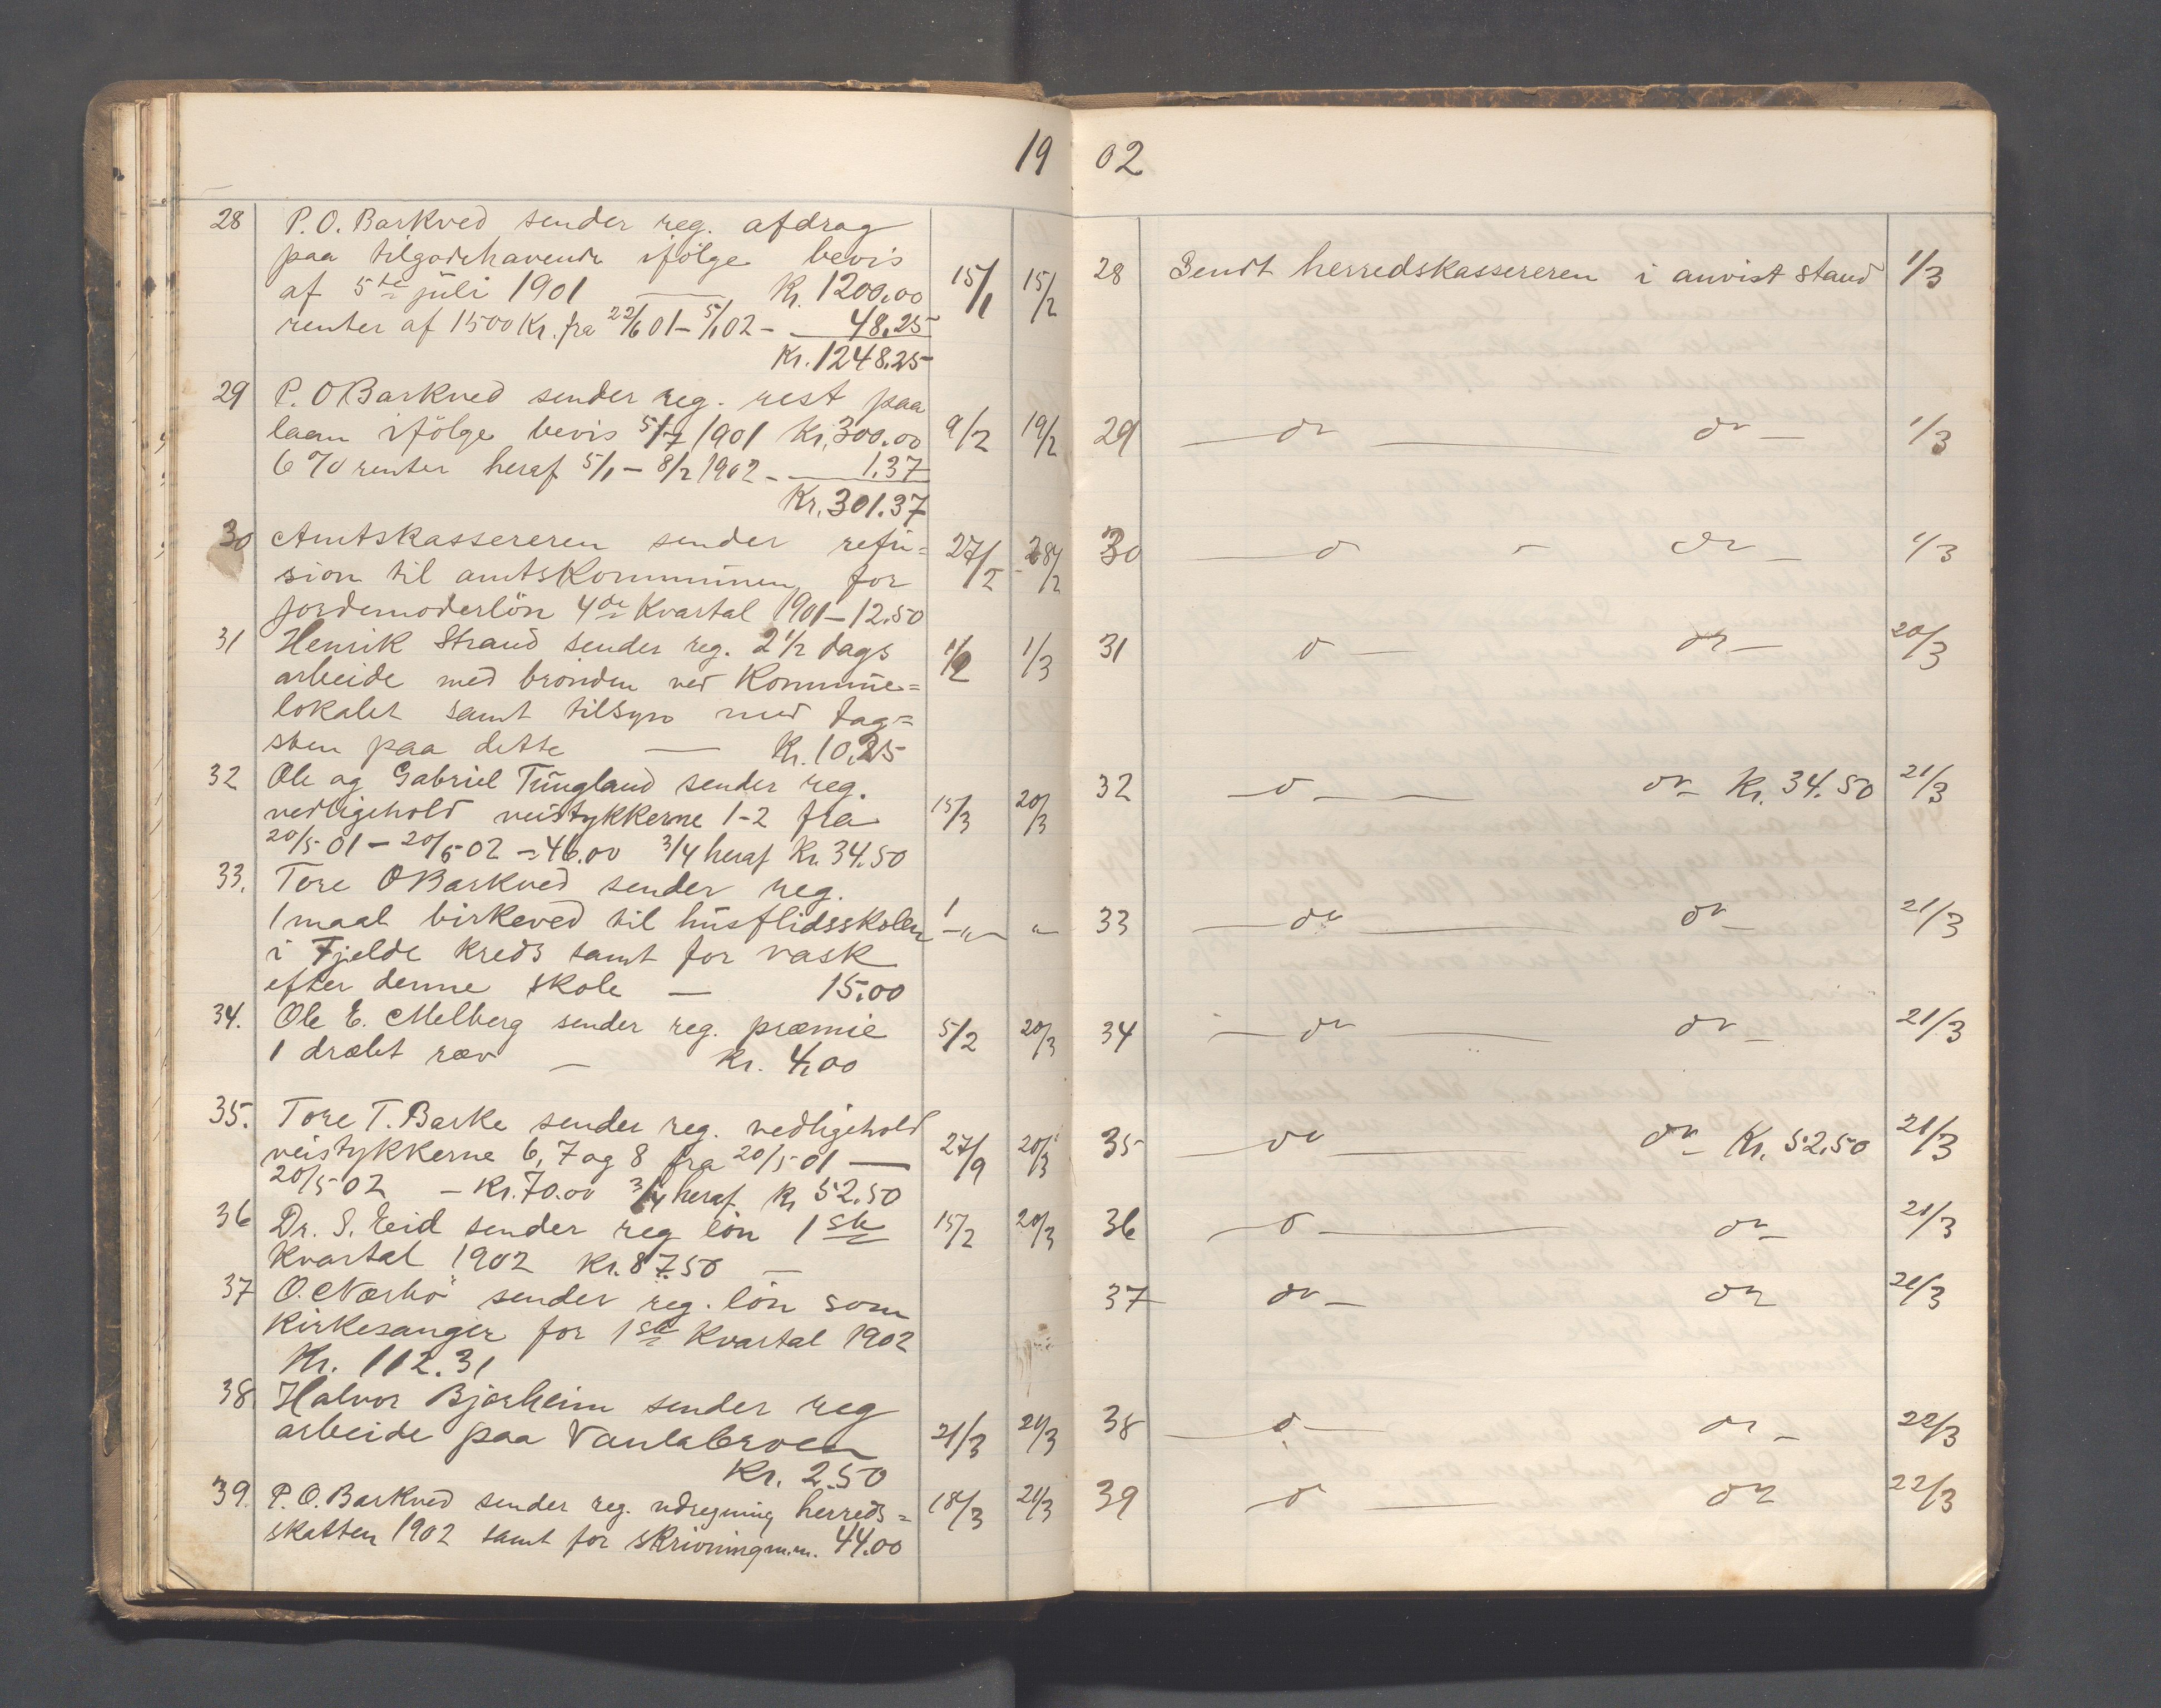 19 02
28 P. O. Barkved sender reg. afdrag
paa tilgodehavende ifölge bevis
af 5te juli 1901 — Kr. 1200.00 15/1 15/2
renter af 1500 Kr. fra 22/6 01 – 5/1 02 – 48.25
Kr. 1248.25
29 P. O Barkved sender reg. rest paa
laan ifölge bevis 5/7 1901 Kr. 300.00 9/2 19/2
6 % renter heraf 5/1 – 8/2 1902 – 1.37
Kr. 301.37
30 Amtskassereren sender refu= 27/2 28/2
sion til amtskommunen for
jordemoderlön 4de Kvartal 1901 – 12.50
31 Henrik Straud sender reg. 2 1/2 dags 1/3
arbeide med brönden ved Kommune=
lokalet samt tilsyn med tag=
sten paa dette — Kr. 10.25
32 Ole og Gabriel Tungland sender reg.
vedligehold veistykkerne 1-2 fra 15/3 20/3
20/5 01 – 20/5 02 – 46.00 3/4 heraf Kr. 34.50
33. Tore O Barkved sender reg.
1 maal birkeved til husflidsskolen – " – "
i Fjelde kreds samt for vask
efter denne skole — 15.00
34. Ole E. Melberg sender reg. præmie 5/2 20/3
1 dræbt ræv — Kr. 4,00
35. Tore T. Barke sender reg. vedligehold
veistykkerne 6, 7 og 8 fra 20/5 01 — 27/9 20/3
20/5 02 – Kr. 70.00 3/4 heraf Kr 52.50
36 Dr. S. Eid sender reg lön 1ste 15/2 20/3
Kvartal 1902 Kr. 87.50 —
37 O. Nærbö sender reg. lön som
Kirkesanger for 1ste Kvartal 1902
Kr. 112.31
38. Halvor Bjorheim sender reg
arbeide paa Vaulabroen 21/3 21/3
Kr. 2.50
39. P. O. Barkved sender reg. udregning herreds= 18/3 21/3
skatten 1902 samt for skrivning m.m. 44.00
28 Sendt herredskassereren i anvist stand 1/3
29 — do — do — 1/3
30 — do — do — 1/3
31 do — do — 20/3
32 — do — do – Kr. 34.50 21/3
33 — do — do – 21/3
34 — do — do – 21/3
35 — do — do – Kr. 52.50 21/3
36 — do — do – 21/3
37 do — do 21/3
38 — do — do – 22/3
39 do — do 22/3